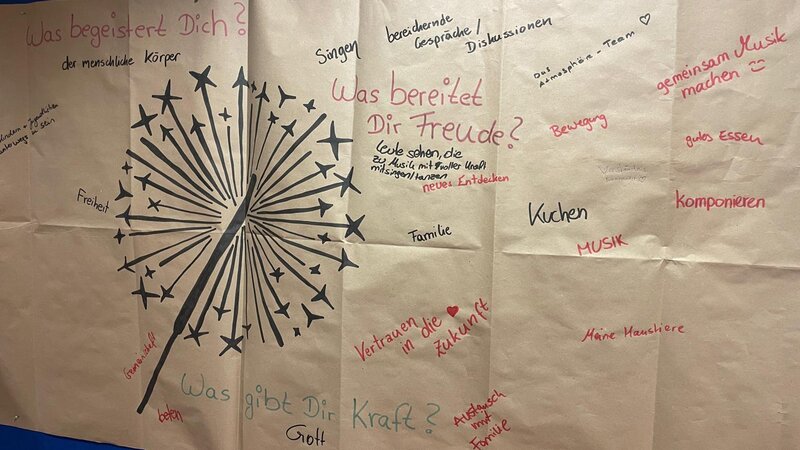 Was begeistert Dich?
der menschliche Körper
Singen
bereichernde
Gespräche /
Diskussionen
Das
Atmosphäre-Team ♡
gemeinsam Musik
machen ☺
Was bereitet
Dir Freude?
Leute sehen, die
zu Musik mit voller Kraft
mitsingen/tanzen
neues Entdecken
Bewegung
gutes Essen
unterwegs zu sein
Freiheit
Familie
Kuchen
komponieren
MUSIK
Vertrauen
in die ♥
Zukunft
Meine Haustiere
Gemeinschaft
beten
Was gibt Dir Kraft?
Gott
Austausch
mit
Familie